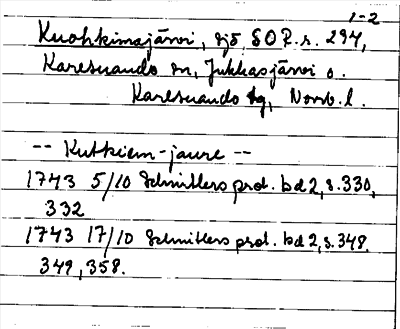 1-2
Kuohkimajärvi, sjö, SOR. s. 297,
Karesuando sn, Jukkasjärvi o.
Karesuando tg, Norrb. l.
-- Kutkiem-jaure --
1743 5/10 Schnitlers prot. bd 2, s. 330,
332
1743 17/10 Schnitlers prot. bd 2, s. 348,
349, 358.